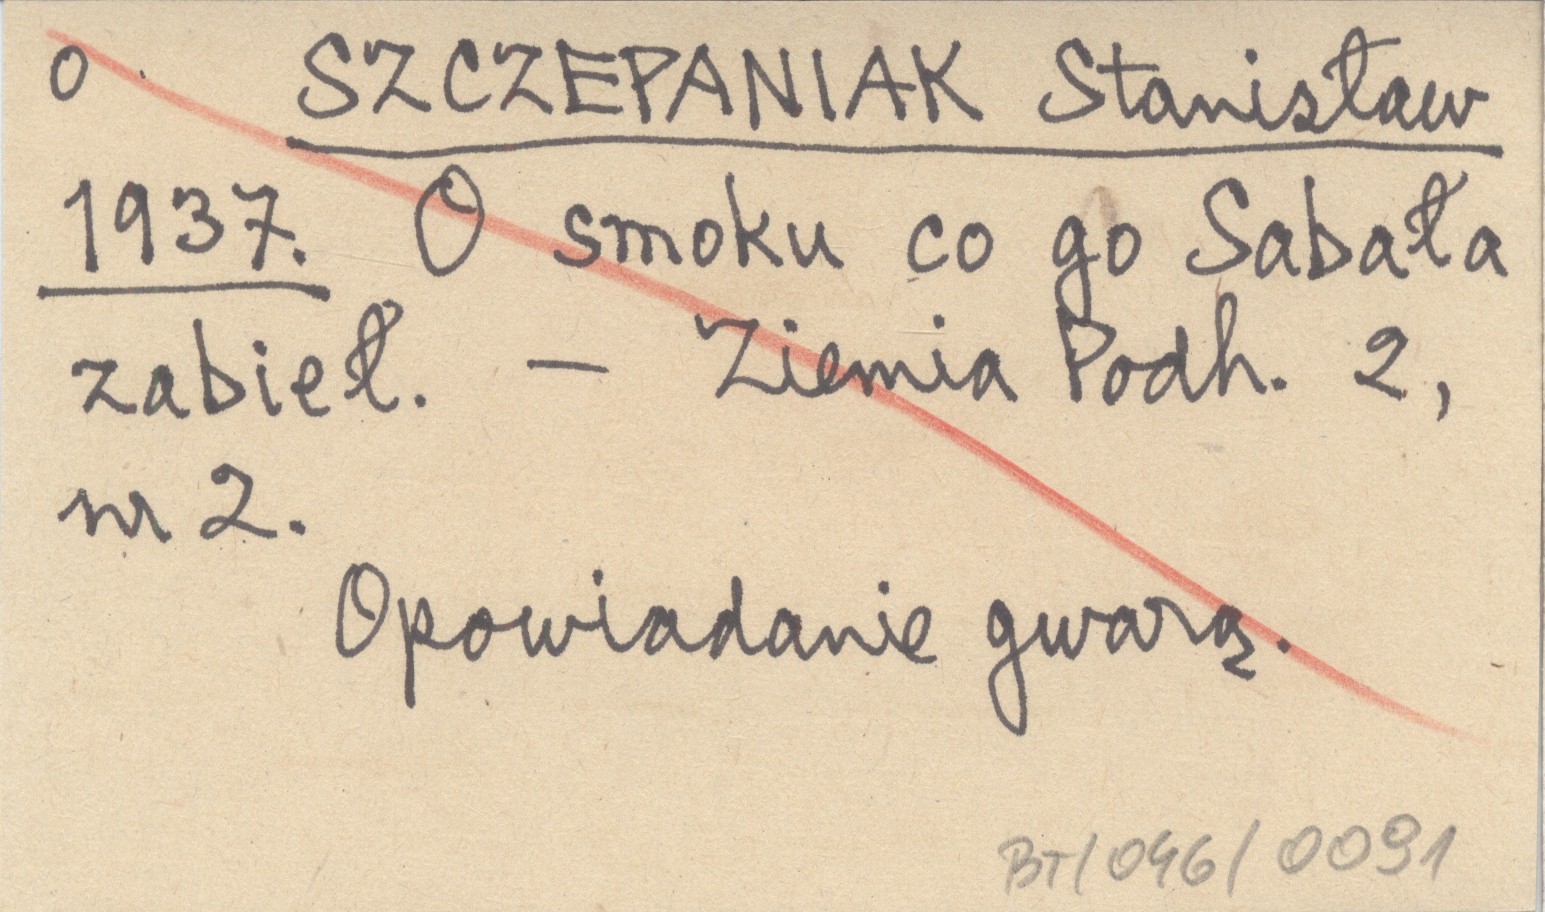 o SZCZEPANIAK Stanisław
1937. O smoku co go Sabała
zabieł. — Ziemia Podh. 2,
nr 2.
Opowiadanie gwarą.
BT/046/0091